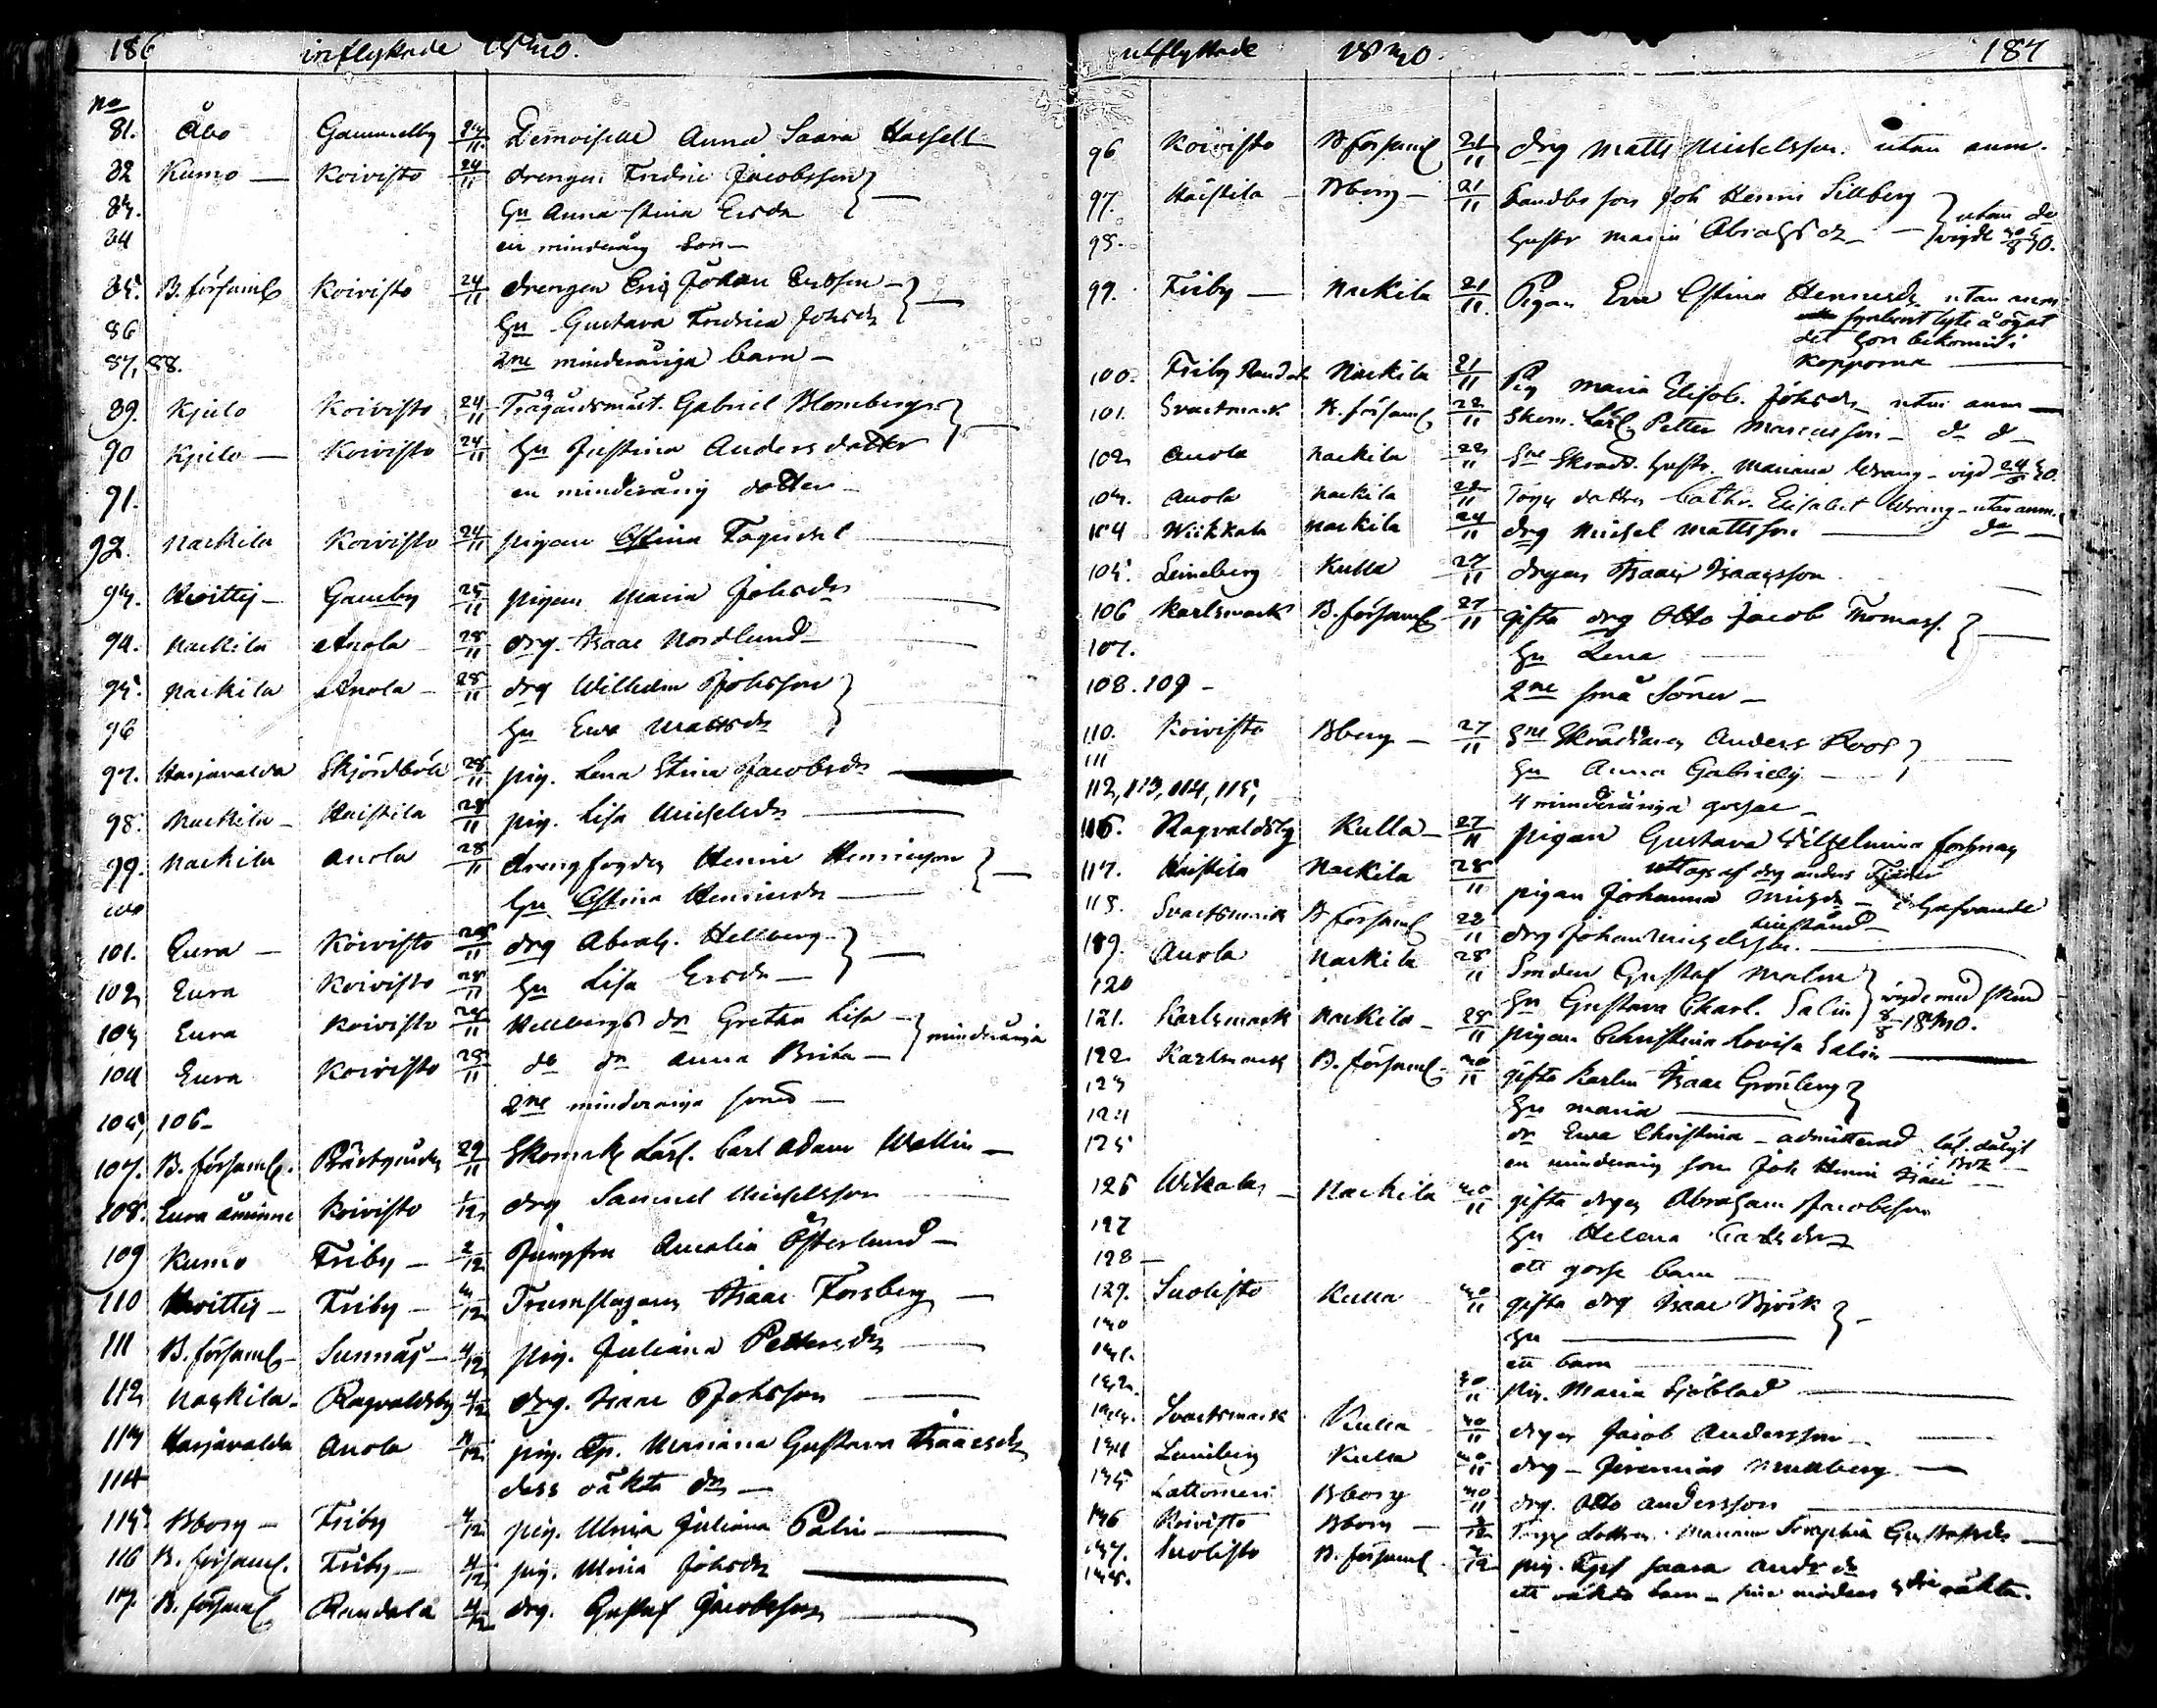 186 inflyttade 1830.
No
81. Åbo Gammelby 24/11 Demoiselle Anna Saara Hassell
82 Kumo — Koivisto 24/11 drengen Fredric Jacobsson
83. Hu Anna Stina Ersdr
84 en minderårig Son —
85. B. församl Koivisto 24/11 drengen Eric Johan Ericsson —
86 Hu Gustava Fredrica Johsdr
87, 88. 2ne minderåriga barn —
89. Kjulo Koivisto 24/11 Trägårdsmäst. Gabriel Blomberg
90 Kjulo — Koivisto 24/11 Hu Justina Andersdotter
91. en minderårig dotter —
92. Nackila Koivisto 24/11 pigan Stina
93. Hvittis — Gamby 25/11 pigan Maria Johsdr
94. Nackila Anola — 28/11 drg. Isaac Nordlund —
95. Nackila Anola — 28/11 drg Wilhelm Johsson
96 Hu Ewa Mattsdr
97. Harjavalda Skjördböle 28/11 pig. Lena Stina Jacobsdr —
98. Nackila — Haistila 28/11 pig. Lisa Michelsdr —
99. Nackila Anola 28/11 drengfogden Henric Henricsson
100 Hu Stina Henricsdr —
101. Eura — Koivisto 28/11 drg Abrah. Hellberg
102 Eura Koivisto 28/11 Hu Lisa Ersdr —
103 Eura Koivisto 28/11 Hellbergs dr Gretha Lisa — minderåriga
104 Eura Koivisto 28/11 do dr Anna Brita —
105, 106 — 2ne minderåriga söner —
107. B. församl. 29/11 Skomak Lärl. Carl Adam Wallin —
108. Eura åminne Koivisto 1/12 drg Samuel Michelsson
109 Kumo Friby — 2/12 Jungfru Amalia Österlund —
110 Hvittis — Friby — 3/12 Trumslagaren Isaac Forsberg —
111 B. församl — Sunnäs — 4/12 pig. Juliana Pettersdr
112 Nackila — Ragvaldsby 4/12 drg. Isaac Johsson —
113 Harjavalda Anola 4/12 pig. Mariana Gustava Isaacsdr
114 dess oäkta dr —
115 Bborg — Friby 4/12 pig. Maria Juliana Palin —
116 B. församl. Friby — 4/12 pig. Maria Johsdr
117. B. församl Randala 4/12 drg. Gustaf Jacobsson
utflyttade 1830. 187
96 Koivisto B församl 21/11 drg Matts Michelsson. utan anm.
97. Haistila — Bborg — 21/11 Landbo son Joh Henric Sillberg utan do
98. hustr Maria Abrahsdr — vigde
99. Friby — Nackila 21/11 Pigan Eva Stina Henricsdr utan anm
synbart lyte å ögat
det hon bekommit i
kopporna —
100. Friby Nackila 21/11 Pig Maria Elisab. Johsdr utan anm —
101. Svartsmark B. församl 22/11 Skom. Lärl. Petter Marcusson — do do —
102 Anola Nackila 22/11 Skrädd. hustr. Mariana Wrang — vigd
103. Anola Nackila 22/11 dotter Cathr. Elisabet Wrang — utan anm.
104 Wiikkala Nackila 24/11 drg Michel Mattsson — do —
105. Leineberg Kulla 27/11 drgen Isaac Isaacsson
106 Karlsmark B. församl 27/11 gifta drg Otto Jacob Thomass.
107. Hu Lena —
108. 109 — 2ne små Söner —
110. Koivisto Bborg — 27/11 Skräddaren Anders Roos
111 Hu Anna Gabriels —
112, 113, 114, 115, 4 minderåriga gossar —
116. Ragvaldsby Kulla — 27/11 pigan Gustava Wilhelmina
af drg Anders
117. Haistila Nackila 28/11 pigan Johanna — i hafvande
tillstånd —
118. Svartsmark B församl 28/11 drg Johan Michelsson. —
119. Anola Nackila 28/11 Smeden Gustaf Malm
120 Hu Gustava Charl. Salin 8/8 1830.
121. Karlsmark Nackila — 28/11 pigan Christina Lovisa Salin —
122 Karlsmark B. församl 30/11 gifta karlen Isaac Grönberg
123 Hu Maria —
124 dr Ewa Christina — admitterad
125 en minderårig son Joh Henric Isaac
126 Wikala — Nackila 30/11 gifta drgen Abraham Jacobsson
127 Hu Helena Carlsdr
128 — ett gosse barn
129. Suolisto Kulla 30/11 gifta drg Isaac Björk
130 Hu —
131. ett barn
132. 30/11 pig. Maria Sjöblad —
133. Svartsmark Kulla 30/11 drgen Jacob Andersson —
134 Leineberg Kulla 30/11 drg — Jeremias Mullberg —
135 Lattomeri Bborg 30/11 drg. Otto Andersson —
136 Koivisto Bborg —
137. Suolisto B. församl 2/12 pig. Saara Andrsdr
138. ett oäkta barn —